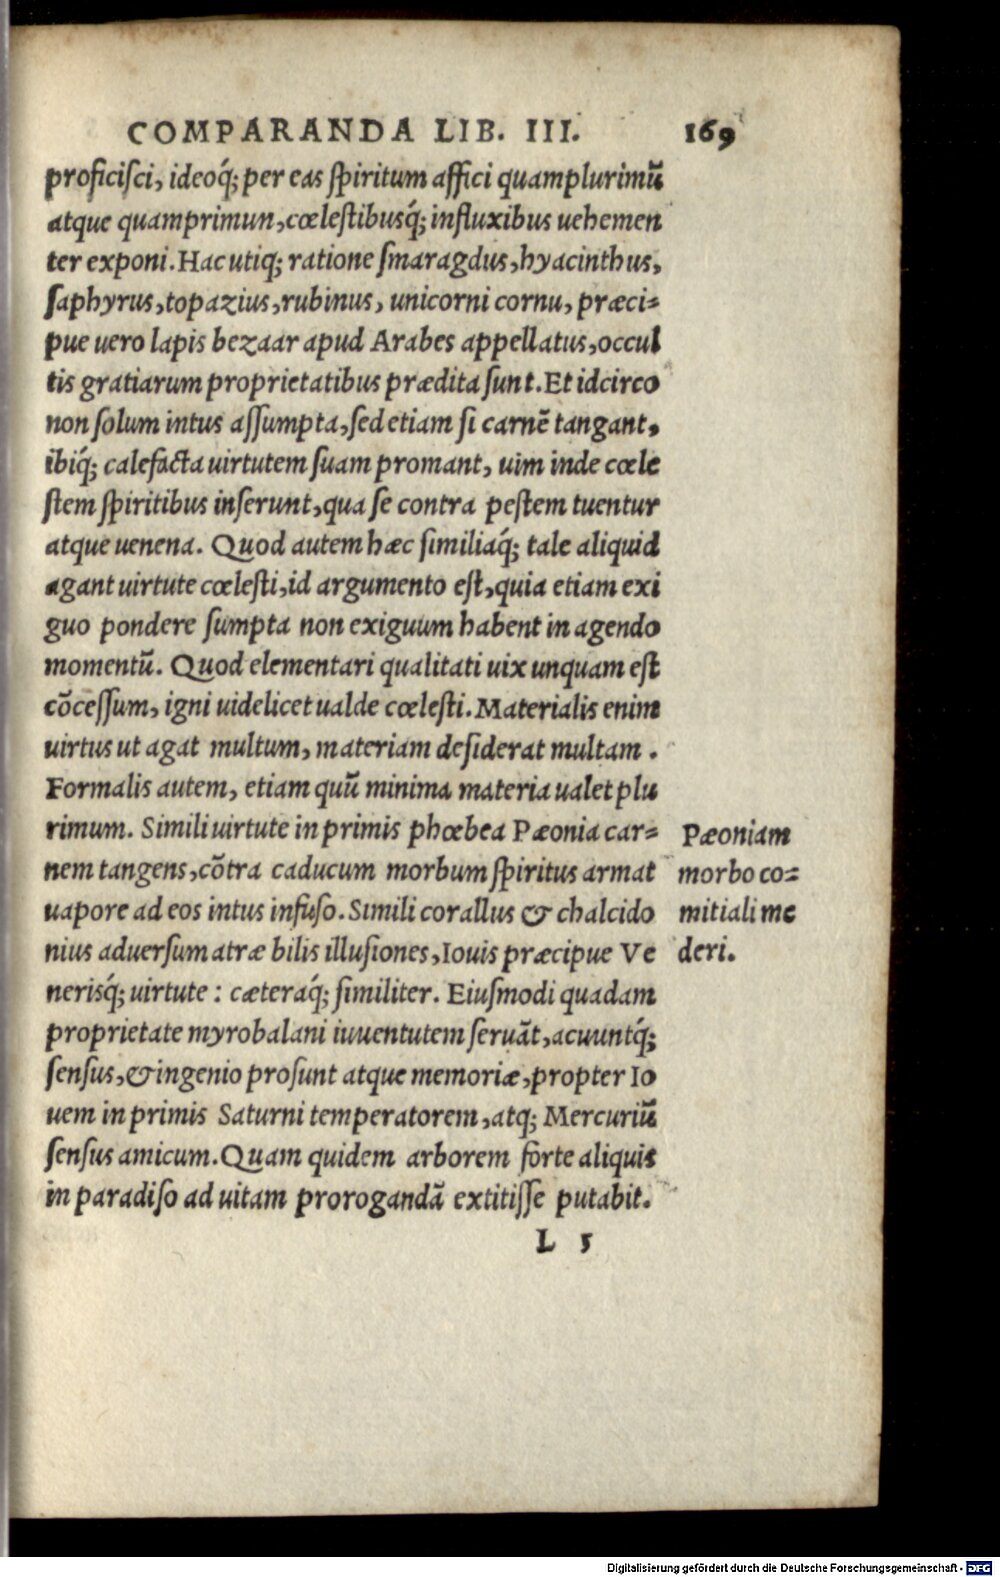 COMPARANDA LIB. III. 169
proficiſci, ideoq́; per eas ſpiritum affici quamplurimū
atque quamprimun, cœleſtibusq́; influxibus uehemen
ter exponi. Hac utiq; ratione ſmaragdus, hyacinthus,
ſaphyrus, topazius, rubinus, unicorni cornu, præci=
pue uero lapis bezaar apud Arabes appellatus, occul
tis gratiarum proprietatibus prædita ſunt. Et idcirco
non ſolum intus aſſumpta, ſed etiam ſi carnē tangant,
ibiq́; calefacta uirtutem ſuam promant, uim inde cœle
ſtem ſpiritibus inſerunt, qua ſe contra peſtem tuentur
atque uenena. Quod autem hæc ſimiliaq́; tale aliquid
agant uirtute cœleſti, id argumento eſt, quia etiam exi
guo pondere ſumpta non exiguum habent in agendo
momentū. Quod elementari qualitati uix unquam eſt
cōceſſum, igni uidelicet ualde cœleſti. Materialis enim
uirtus ut agat multum, materiam deſiderat multam.
Formalis autem, etiam quū minima materia ualet plu
rimum. Simili uirtute in primis phœbea Pæonia car=
nem tangens, cōtra caducum morbum ſpiritus armat
uapore ad eos intus infuſo. Simili corallus & chalcido
nius aduerſum atræ bilis illuſiones, Iouis præcipue Ve
nerisq́; uirtute : cæteraq́; ſimiliter. Eiuſmodi quadam
proprietate myrobalani iuuentutem ſeruāt, acuuntq́;
ſenſus, & ingenio proſunt atque memoriæ, propter Io
uem in primis Saturni temperatorem, atq; Mercuriū
ſenſus amicum. Quam quidem arborem forte aliquis
in paradiſo ad uitam prorogandā extitiſſe putabit.
L 5
Pæoniam
morbo co=
mitiali me
deri.
Digitalisierung gefördert durch die Deutsche Forschungsgemeinschaft - DFG